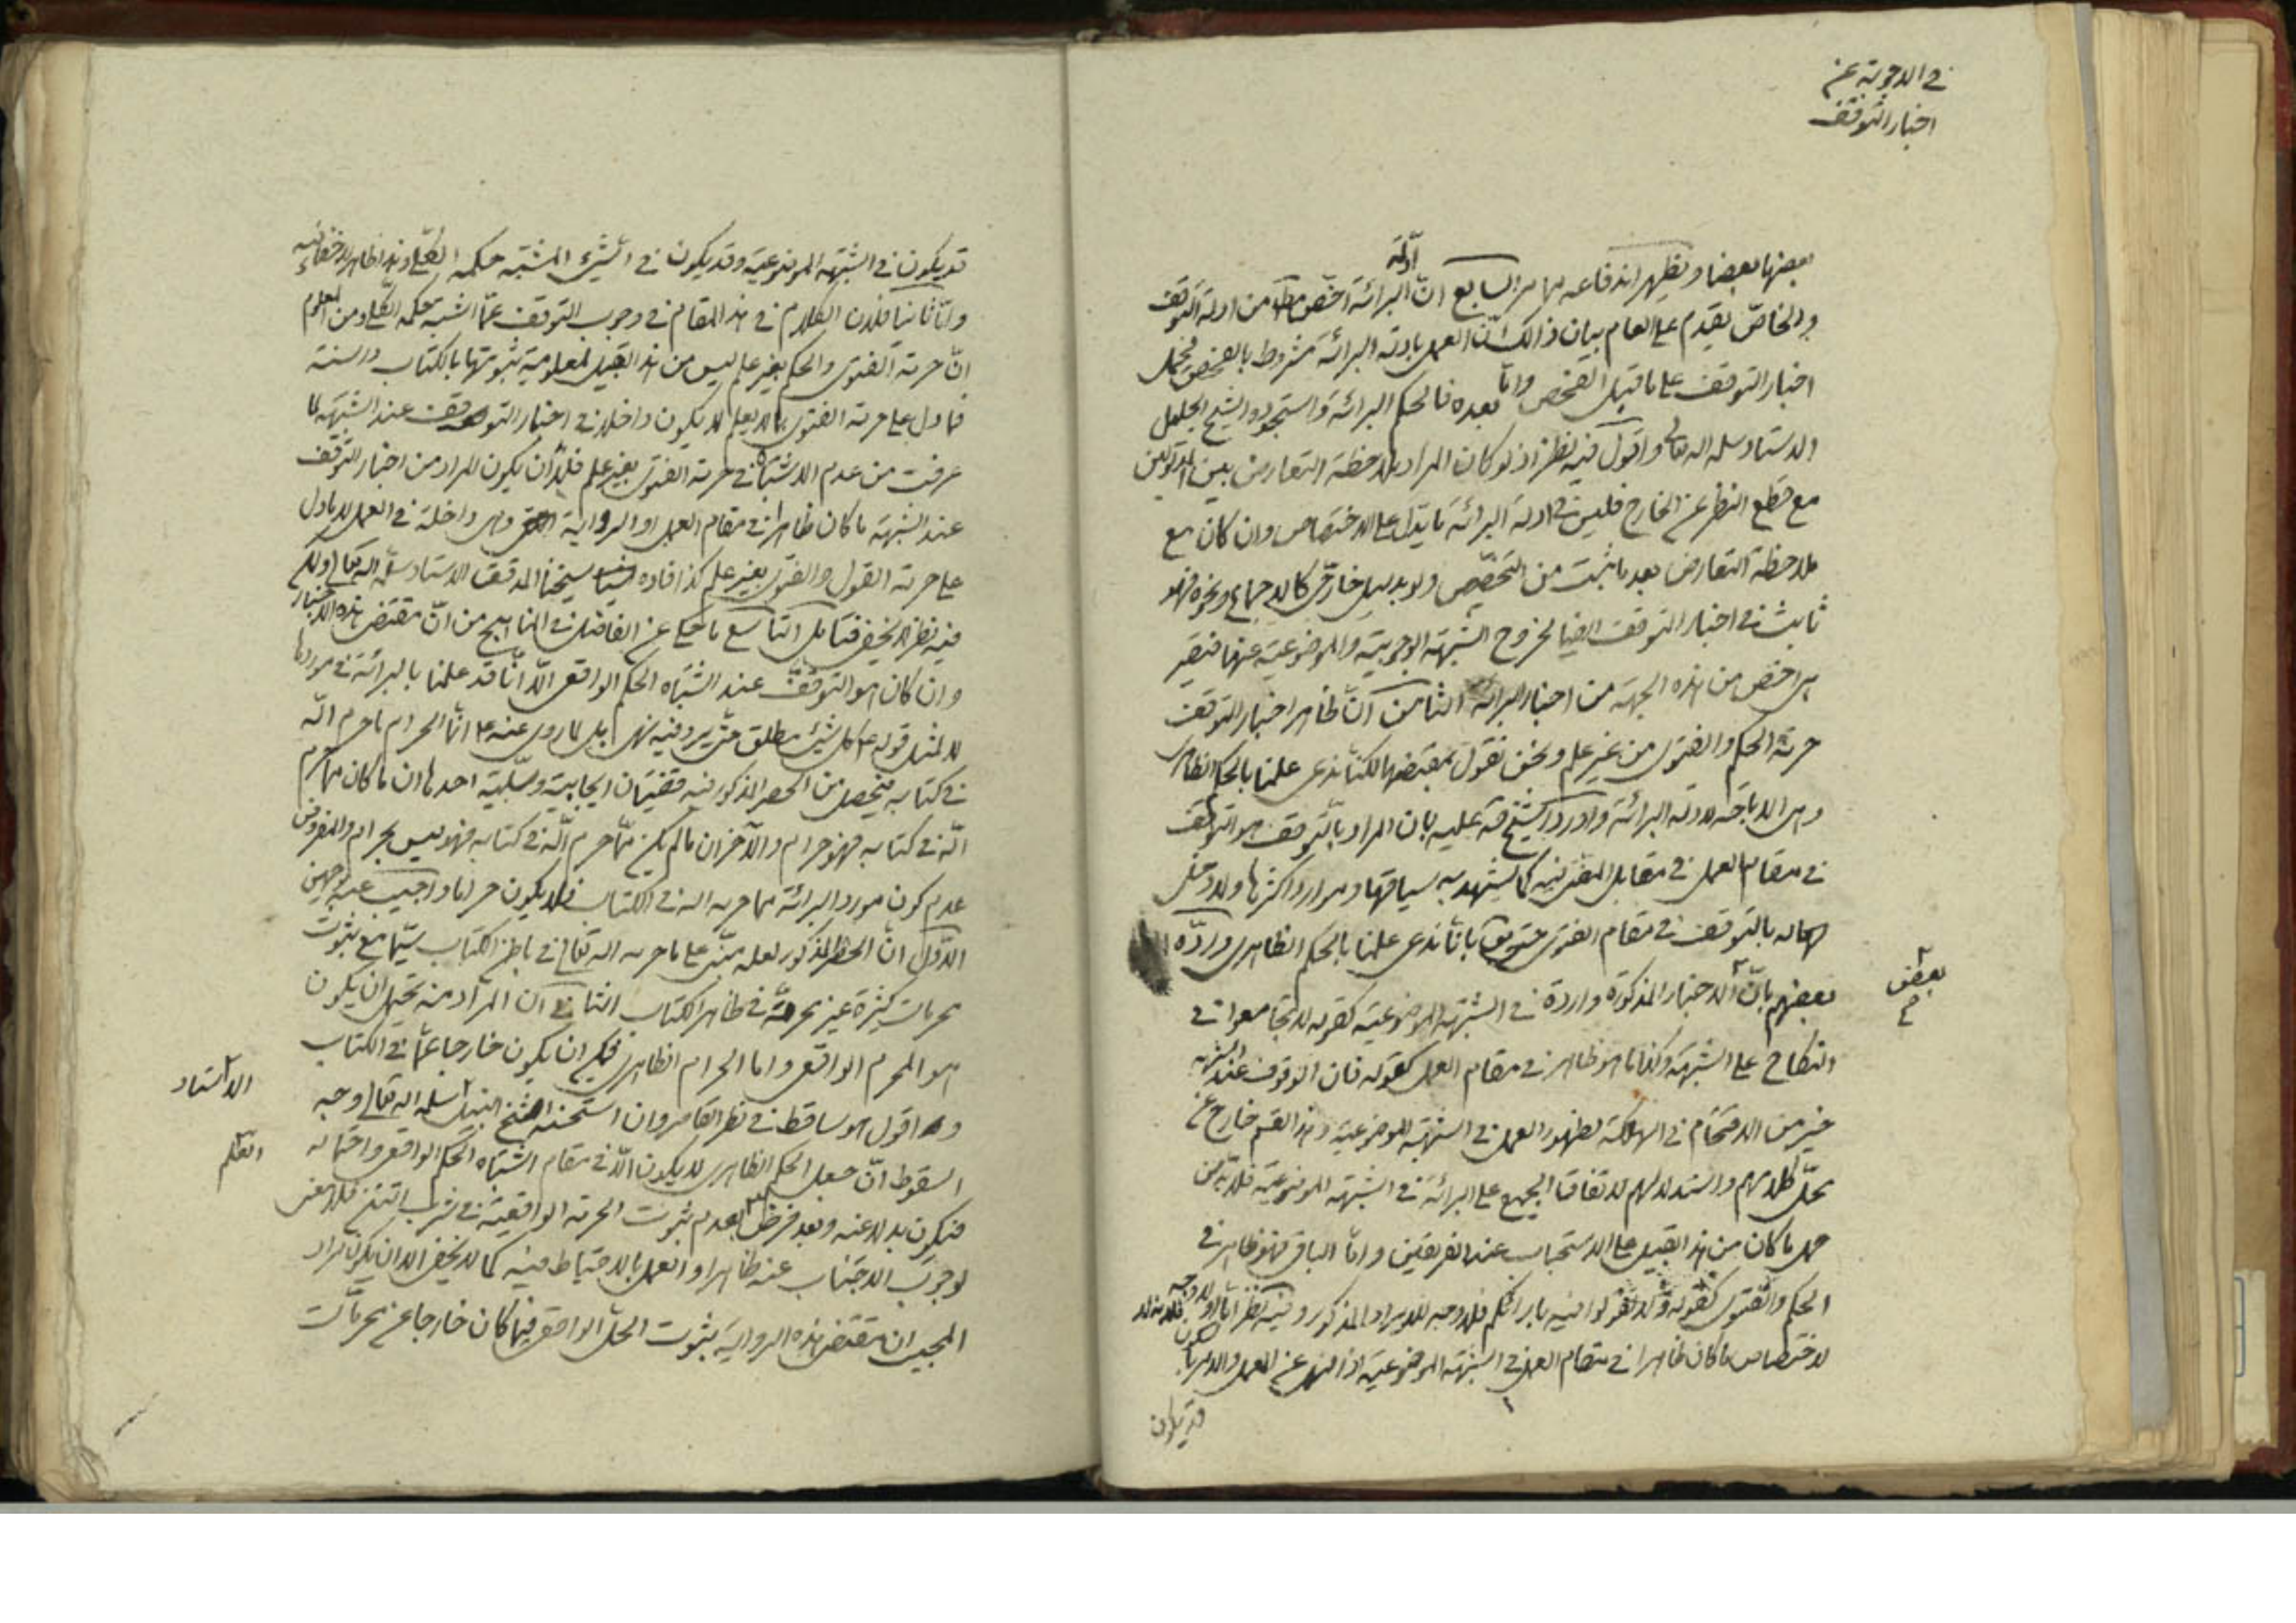 في الاجوبة عن
اخبار التوقف
بعضها بعضا ويظهر اندفاعه مما مر السابع ان ادلة البرائة اخص من ادلة التوقف
والخاص يقدم على العام بيان ذلك ان العمل بادلة البرائة مشروط بالفحص فيحمل
اخبار التوقف على ما قبل الفحص واما بعده فالحكم البرائة واستجوده الشيخ الجليل
الاستاد سلمه الله تعالى واقول فيه نظر اذ لو كان المراد ملاحظة التعارض بين الدليلين
مع قطع النظر عن الخارج فليس في ادلة البرائة ما يدل على الاختصاص وان كان مع
ملاحظة التعارض بعد ما ثبت من التخصص ولو بدليل خارجي كالاجماع ونحوه فهو
ثابت في اخبار التوقف ايضا لخروج الشبهة الوجوبية والموضوعية عنها فتصير
هي اخص من هذه الجهة من اخبار البرائة الثامن ان ظاهر اخبار التوقف
حرمة الحكم والفتوى من غير علم ونحن نقول بمقتضاها لكنا ندعى علمنا بالحكم الظاهرى
وهى الاباحة لادلة البرائة واورد الشيخ قه عليه بان المراد بالتوقف هو التوقف
في مقام العمل في مقابل المضى فيه كما يشهد به سياقها وموارد اكثرها ولا دخل
له بالتوقف في مقام الفتوى حتى بانا ندعى علمنا بالحكم الظاهرى ورده
بعض
بعضهم بان الاخبار المذكورة واردة في الشبهة الموضوعية كقوله لا تجامعوا في
النكاح على الشبهة وكذا ما هو ظاهر في مقام العمل كقوله فان الوقوف عند الشبهة
خير من الاقتحام في الهلكة لظهور العمل في الشبهة الموضوعية وهذا القسم خارج عن
محل كلامهم واستدلالهم لاتفاق الجميع على البرائة في الشبهة الموضوعية فلا بد من
حمل ما كان من هذا القبيل على الاستحباب عند الفريقين واما الباقى فهو ظاهر في
الحكم والفتوى كقوله ولا تقولوا فيه بارائكم فلا وجه للايراد المذكور وفيه نظر اما اولا فلانه لا وجه
لاختصاص ما كان ظاهرا في مقام العمل في الشبهة الموضوعية اذ النهى عن العمل والامر بالسكون
قد يكون
قد يكون في الشبهة الموضوعية وقد يكون في الشيء المشتبه حكمه الكلى وهذا ظاهر لا خفاء فيه
واما ثانيا فلان الكلام في هذا المقام في وجوب التوقف عما اشتبه حكمه الكلى ومن المعلوم
ان حرمة الفتوى والحكم بغير علم ليس من هذا القبيل لمعلومية ثبوتها بالكتاب والسنة
فما دل على حرمة الفتوى بما لا يعلم لا يكون داخلا في اخبار التوقف عند الشبهة لما
عرفت من عدم الاشتباه في حرمة الفتوى بغير علم فلا بد ان يكون المراد من اخبار التوقف
عند الشبهة ما كان ظاهرا في مقام العمل او الرواية وهى داخلة في العمل لا ما دل
على حرمة القول والفتوى بغير علم كذا افاده شيخنا المدقق الاستاد سلمه الله تعالى ولكن
فيه نظر لا يخفى فتامل التاسع ما حكى عن الفاضل في المناهج من ان مقتضى هذه الاخبار
وان كان هو التوقف عند اشتباه الحكم الواقعى الا انا قد علمنا بالبرائة في مواردها
لا لمثل قوله ع كل شيء مطلق حتى يرد فيه نهى بل لما روى عنه ع انما الحرام ما حرم الله
في كتابه فيحصل من الحصر المذكور فيه قضيتان ايجابية وسلبية احدها ان ما كان مما حرم
الله في كتابه فهو حرام والآخر ان ما لم يكن مما حرم الله في كتابه فهو ليس بحرام والمفروض
عدم كون مورد البرائة مما حرمه الله في الكتاب فلا يكون حراما واجيب عنه بوجهين
الاول ان الحصر المذكور لعله مبنى على ما حرمه الله تعالى في باطن الكتاب سيما مع ثبوت
محرمات كثيرة غير محرمة في ظاهر الكتاب الثانى ان المراد منه يحتمل ان يكون
هو المحرم الواقعى واما الحرام الظاهرى فيمكن ان يكون خارجا عما في الكتاب
الاستاد
واقول هو ساقط في نظر القاصر وان استحسنه الشيخ النبيل سلمه الله تعالى وجه
السقوط ان جعل الحكم الظاهرى لا يكون الا في مقام اشتباه الحكم الواقعى واحتماله
العلم
فيكون بدلا عنه وبعد فرض بعدم ثبوت الحرمة الواقعية في شرب التتن فلا معنى
لوجوب الاجتناب عنه ظاهرا والعمل بالاحتياط فيه كما لا يخفى الا ان يكون مراد
المجيب ان مقتضى هذه الرواية ثبوت الحل الواقعى فيما كان خارجا عن محرمات